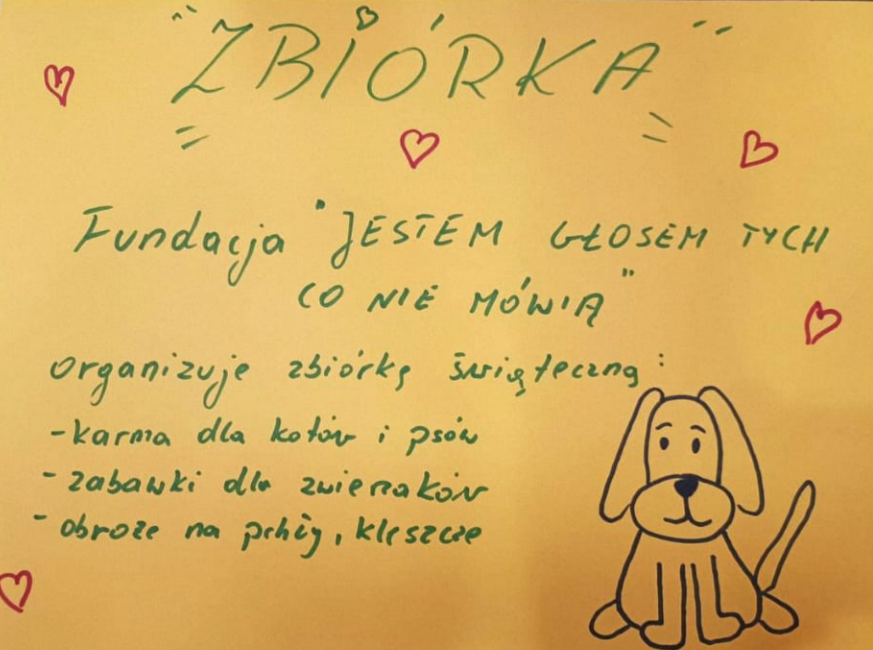 "ZBIÓRKA"
Fundacja "JESTEM GŁOSEM TYCH
CO NIE MÓWIĄ"
organizuje zbiórkę świąteczną:
- karma dla kotów i psów
- zabawki dla zwierzaków
- obroże na pchły, kleszcze